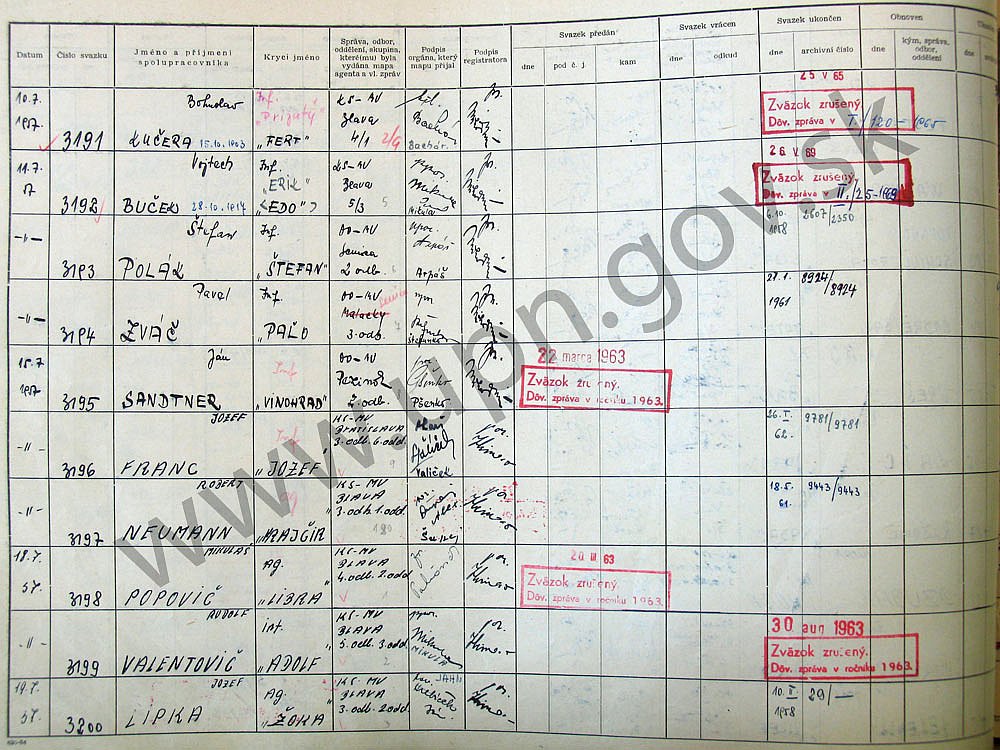 Datum
Číslo svazku
Jméno a příjmení
spolupracovníka
Krycí jméno
Správa, odbor,
oddělení, skupina,
které(mu) byla
vydána mapa
agenta a vl. zpráv
Podpis
orgána, který
mapu přijal
Podpis
registratora
Svazek předán
dne
pod č. j.
kam
Svazek vrácen
dne
odkud
Svazek ukončen
dne
archivní číslo
Obnoven
dne
kým, správa,
odbor,
oddělení
dne
10.7.
1957
3191
Bohuslav
KUČERA 15.10.1903
Inf.
"Prijatý"
"FERT"
KS-MV
Blava
4/1 2/6
Bachár.
25 V 65
Zväzok zrušený
Dôv. zpráva v I/120-1965
11.7.
57
3192
Vojtech
BUČEK 28.10.1917
Inf.
"ERIK"
"EDO"
KS-MV
Blava
5/3 5
Mikula
26 V. 69
Zväzok zrušený
Dôv. zpráva v II./25-1969
-"-
3193
Štefan
POLÁK
Inf.
"ŠTEFAN"
OO-MV
Senica
2 odb.
Arpáš
6.10.
1958
2607/2350
-"-
3194
Pavel
ZVÁČ
Inf.
"PAĽO"
OO-MV
Malacky Senica
3. odb.
Štepanko
27.1.
1961
8924/8924
15.7
1957
3195
Ján
SANDTNER
Inf
"VINOHRAD"
OO-MV
Pezinok
2. odb.
Pšenko
22 marca 1963
Zväzok zrušený.
Dôv. zpráva v ročníku 1963.
-"-
3196
JOZEF
FRANC
Inf
"JOZEF"
KS-MV
BRATISLAVA
3. odb. 6. odd.
9
Valíček
por.
26.I.
62.
9781/9781
-"-
3197
ROBERT
NEUMANN
Ag
"KRAJČÍR"
KS-MV
BLAVA
3. odb. 1. odd.
por.
18.5.
61.
9443/9443
18.7.
57.
3198
MIKULÁŠ
POPOVIČ
Ag.
"LIBRA"
KS-MV
BLAVA
4. odb. 2. odd
1
por.
20 III 63
Zväzok zrušený.
Dôv. zpráva v ročníku 1963.
-"-
3199
RUDOLF
VALENTOVIČ
inf.
"ADOLF"
KS-MV
BLAVA
5. odb. 3. odd
2
MIKULA
por.
30 aug 1963
Zväzok zrušený.
Dôv. zpráva v ročníku 1963.
19.7.
57.
3200
JOZEF
LIPKA
Ag.
"ŽOKA"
KS-MV
BLAVA
3. odb. 2. odd.
por.
10.II
1958
29/—
www.upn.gov.sk